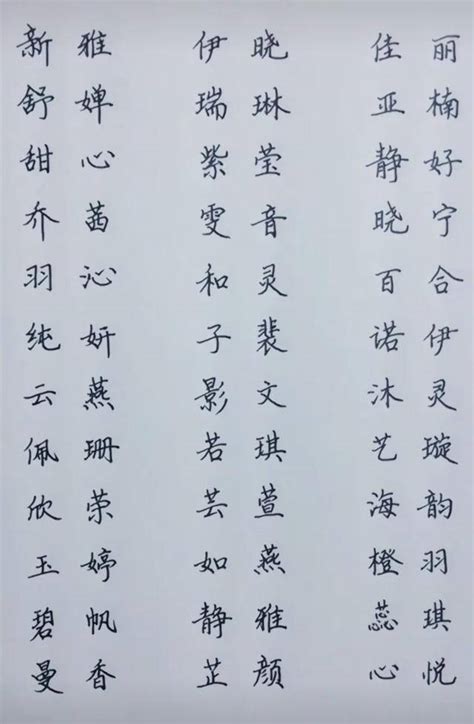 新雅 伊晓 佳丽
舒婵 瑞琳 亚楠
甜心 紫莹 静好
乔茜 雯音 晓宁
羽沁 和灵 百合
纯妍 子裴 诺伊
云燕 影文 沐灵
佩珊 若琪 艺璇
欣荣 芸萱 海韵
玉婷 如燕 橙羽
碧帆 静雅 蕊琪
曼香 芷颜 心悦